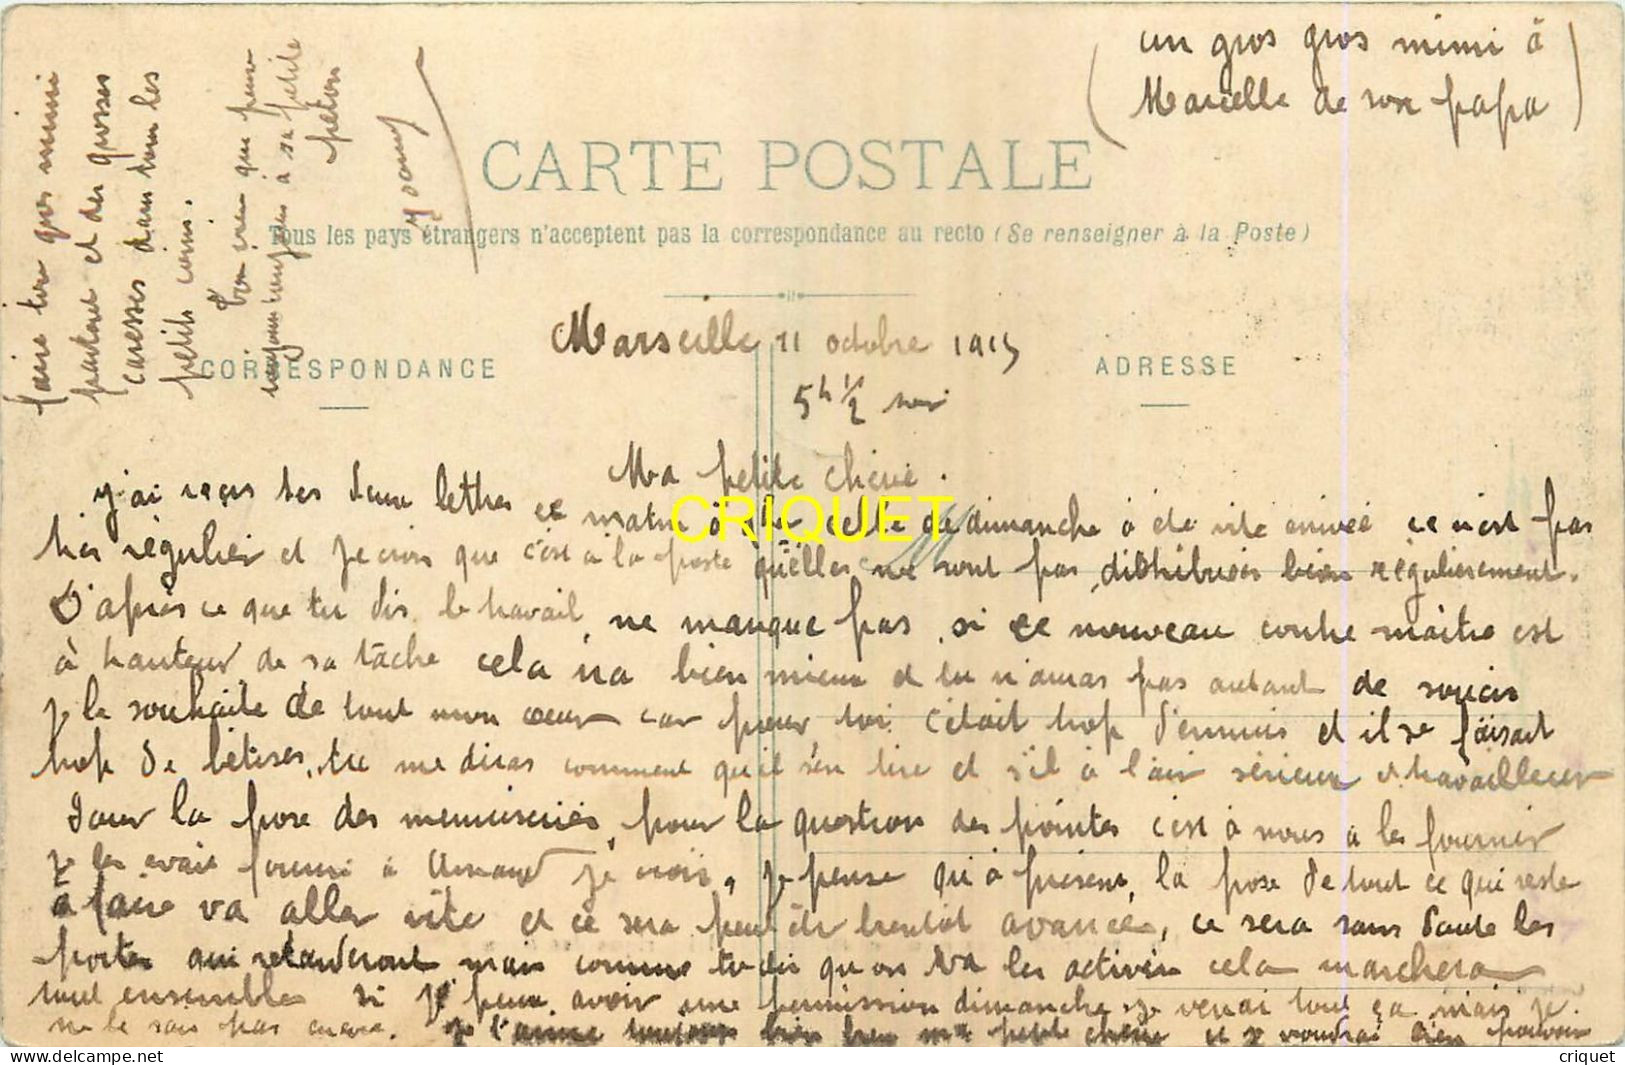 (un gros gros mimi à
Marcelle de son papa)
CARTE POSTALE
Tous les pays étrangers n'acceptent pas la correspondance au recto (Se renseigner à la Poste)
Marseille 11 octobre 1915
CORRESPONDANCE
ADRESSE
5h 1/2 soir
Ma petite chérie.
j'ai reçu tes deux lettres ce matin à celle de dimanche à été vite arrivée ce n'est pas
très régulier et je crois que c'est à la poste qu'elles ne sont pas distribuées bien régulièrement.
D'après ce que tu dis le travail ne manque pas, si ce nouveau contre maître est
à hauteur de sa tâche cela ira bien mieux et tu n'auras pas autant de soucis
je le souhaite de tout mon coeur car pour toi c'était trop d'ennuis et il se faisait
trop de bêtises, tu me diras comment qu'il s'en tire et s'il à l'air sérieux et travailleur
pour la pose des menuiseries, pour la question des pointes c'est à nous a les fournir
je les avais fourni à Arnaud je crois, je pense qu'à présent, la pose de tout ce qui reste
à faire va aller vite et ce sera peut être bientôt avancé, ce sera sans doute les
portes qui retarderont mais comme tu dis qu'on va les activer cela marchera
tout ensemble si je peux avoir une permission dimanche je verrai tout ça mais je
ne le sais pas encore. je t'aime toujours bien bien ma petite chérie et je voudrai bien pouvoir
faire ton gros mimi
partout et des grosses
caresses dans tous les
petits coins.
ton vieu que pense
toujours à sa petite
CRIQUET
criquet
https://www.delcampe.net